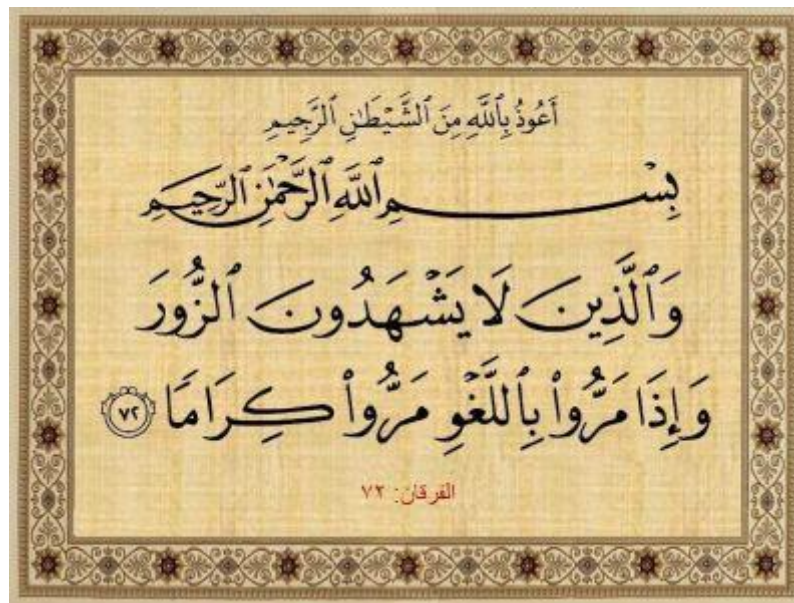 أَعُوذُ بِٱللَّهِ مِنَ ٱلشَّيْطَٰنِ ٱلرَّجِيمِ
بِسْمِ ٱللَّهِ ٱلرَّحْمَٰنِ ٱلرَّحِيمِ
وَٱلَّذِينَ لَا يَشْهَدُونَ ٱلزُّورَ
وَإِذَا مَرُّوا۟ بِٱللَّغْوِ مَرُّوا۟ كِرَامًا ٧٢
الفرقان: ٧٢